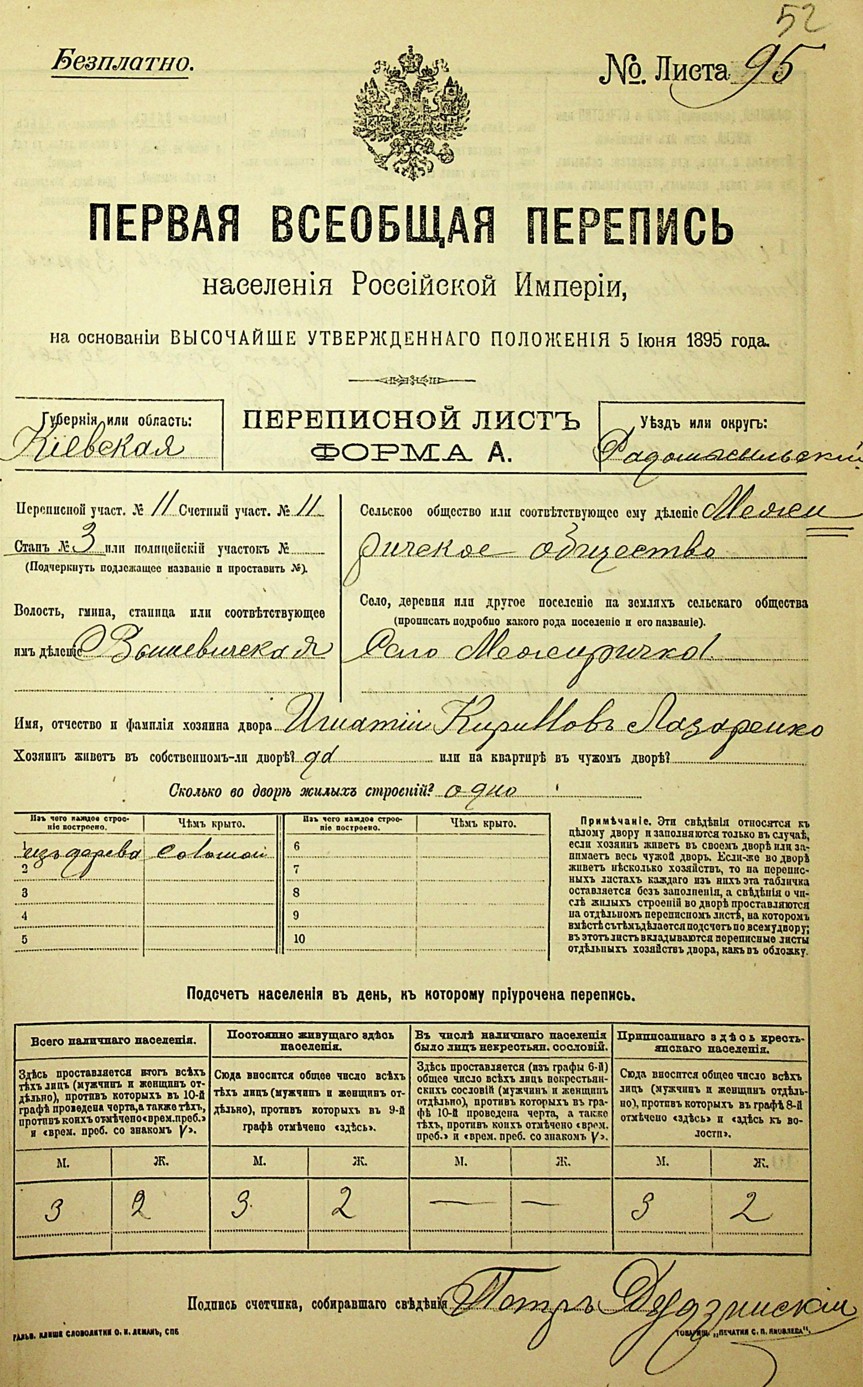 52
Безплатно.
№. Листа 95
ПЕРВАЯ ВСЕОБЩАЯ ПЕРЕПИСЬ
населенія Россійской Имперіи,
на основаніи ВЫСОЧАЙШЕ УТВЕРЖДЕННАГО ПОЛОЖЕНІЯ 5 Іюня 1895 года.
Губернія или область:
Кіевская
ПЕРЕПИСНОЙ ЛИСТЪ
ФОРМА А.
Уѣздъ или округъ:
Радомысльскій
Переписной участ. № 11 Счетный участ. № 11
Станъ № 3 или полицейскій участокъ №
(Подчеркнуть подлежащее названіе и проставить №).
Волость, гмина, станица или соотвѣтствующее
имъ дѣленіе Вышевичская
Сельское общество или соотвѣтствующее ему дѣленіе Межи
ричское общество
Село, деревня или другое поселеніе на земляхъ сельскаго общества
(прописать подробно какого рода поселеніе и его названіе).
Село Межиричка
Имя, отчество и фамилія хозяина двора Игнатій Кириловъ Лазаренко
Хозяинъ живетъ въ собственномъ-ли дворѣ? да или на квартирѣ въ чужомъ дворѣ?
Сколько во дворѣ жилыхъ строеній? одно
Изъ чего каждое строеніе построено.
Чѣмъ крыто.
1 изъ дерева соломой
2
3
4
5
Изъ чего каждое строеніе построено.
Чѣмъ крыто.
6
7
8
9
10
Примѣчаніе. Эти свѣдѣнія относятся къ
цѣлому двору и заполняются только въ случаѣ,
если хозяинъ живетъ въ своемъ дворѣ или за-
нимаетъ весь чужой дворъ. Если-же во дворѣ
живетъ нѣсколько хозяйствъ, то на перепис-
ныхъ листахъ каждаго изъ нихъ эта табличка
оставляется безъ заполненія, а свѣдѣнія о чи-
слѣ жилыхъ строеній во дворѣ проставляются
на отдѣльномъ переписномъ листѣ, на которомъ
вмѣстѣ съ тѣмъ дѣлается подсчетъ по всему двору;
въ этотъ листъ вкладываются переписные листы
отдѣльныхъ хозяйствъ двора, какъ въ обложку.
Подсчетъ населенія въ день, къ которому пріурочена перепись.
Всего наличнаго населенія.
Здѣсь проставляется итогъ всѣхъ
тѣхъ лицъ (мужчинъ и женщинъ от-
дѣльно), противъ которыхъ въ 10-й
графѣ проведена черта, а также тѣхъ,
противъ коихъ отмѣчено «врем. преб.»
и «врем. преб. со знакомъ V».
М. Ж.
3 2
Постоянно живущаго здѣсь
населенія.
Сюда вносится общее число всѣхъ
тѣхъ лицъ (мужчинъ и женщинъ от-
дѣльно), противъ которыхъ въ 9-й
графѣ отмѣчено «здѣсь».
М. Ж.
3 2
Въ числѣ наличнаго населенія
было лицъ некрестьян. сословій.
Здѣсь проставляется (изъ графы 6-й)
общее число всѣхъ лицъ некрестьян-
скихъ сословій (мужчинъ и женщинъ
отдѣльно), противъ которыхъ въ гра-
фѣ 10-й проведена черта, а также
тѣхъ, противъ коихъ отмѣчено «врем.
преб.» и «врем. преб. со знакомъ V».
М. Ж.
— —
Приписаннаго здѣсь кресть-
янскаго населенія.
Сюда вносится общее число всѣхъ
лицъ (мужчинъ и женщинъ отдѣль-
но), противъ которыхъ въ графѣ 8-й
отмѣчено «здѣсь» и «здѣсь къ во-
лости».
М. Ж.
3 2
Подпись счетчика, собиравшаго свѣдѣнія Петръ Дудзинскій
ГАЛЬВ. КЛИШЕ СЛОВОЛИТНИ О. И. ЛЕМАНЪ, СПБ
ТОВАРИЩ. „ПЕЧАТНИ С. П. ЯКОВЛЕВА“.